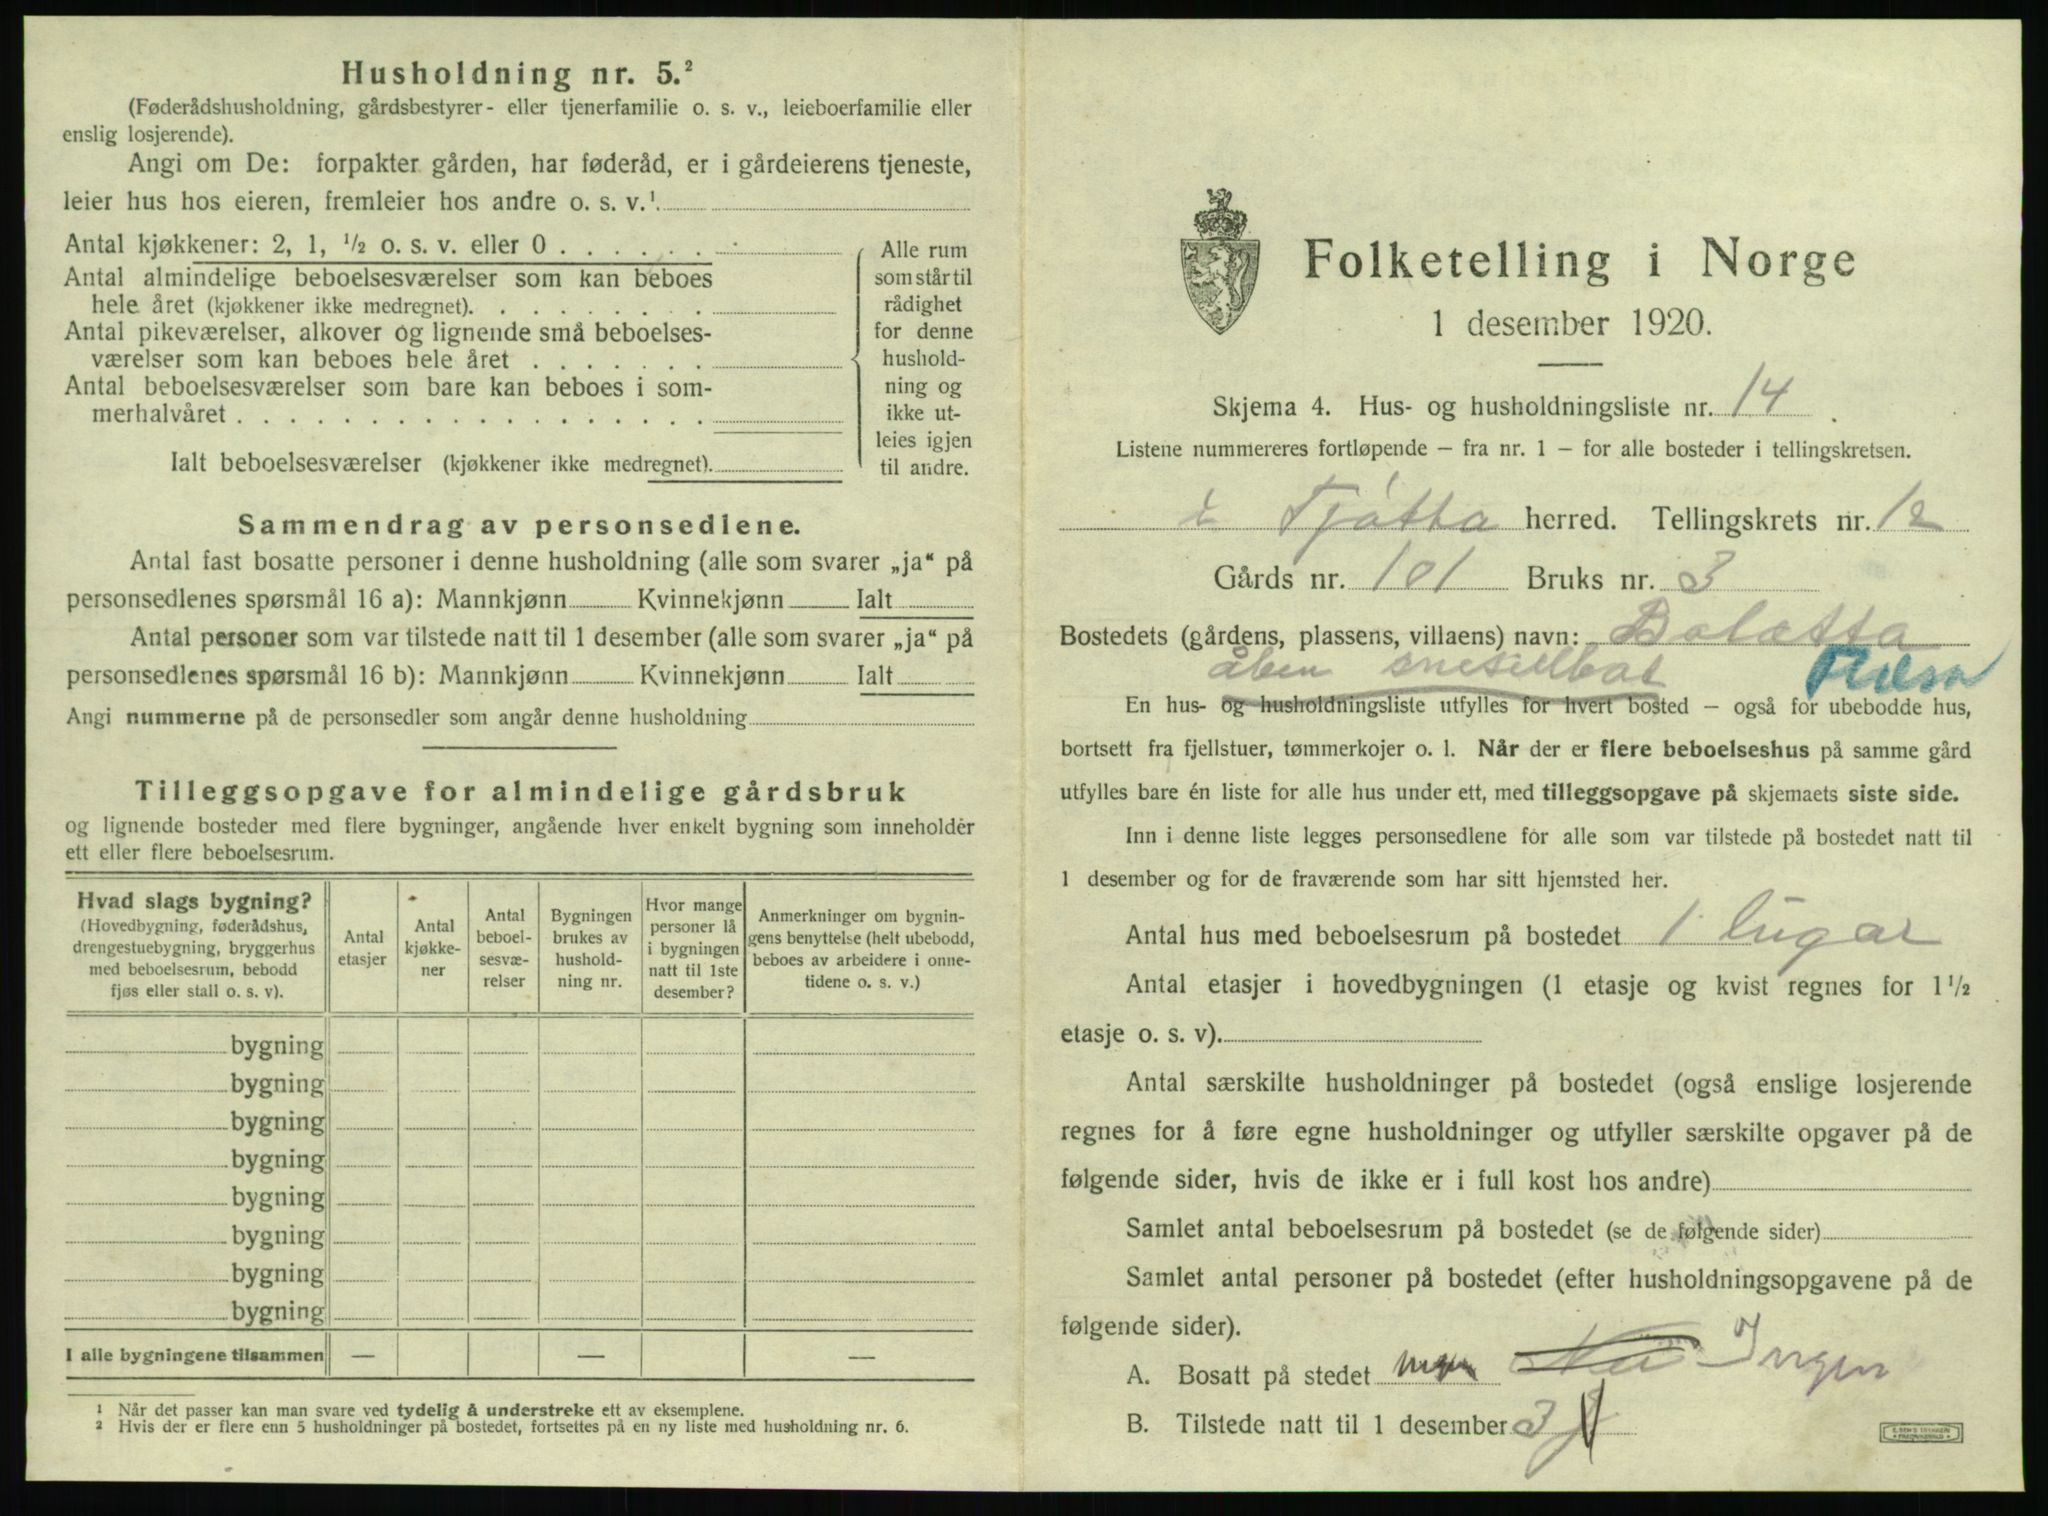 Husholdning nr. 5.²
(Føderådshusholdning, gårdsbestyrer- eller tjenerfamilie o. s. v., leieboerfamilie eller
enslig losjerende).
Angi om De: forpakter gården, har føderåd, er i gårdeierens tjeneste,
leier hus hos eieren, fremleier hos andre o. s. v.¹
Antal kjøkkener: 2, 1, ½ o. s. v. eller 0
Antal almindelige beboelsesværelser som kan beboes
hele året (kjøkkener ikke medregnet).
Antal pikeværelser, alkover og lignende små beboelses-
værelser som kan beboes hele året
Antal beboelsesværelser som bare kan beboes i som-
merhalvåret
Ialt beboelsesværelser (kjøkkener ikke medregnet).
Alle rum
som står til
rådighet
for denne
hushold-
ning og
ikke ut-
leies igjen
til andre.
Sammendrag av personsedlene.
Antal fast bosatte personer i denne husholdning (alle som svarer „ja“ på
personsedlenes spørsmål 16 a): Mannkjønn Kvinnekjønn Ialt
Antal personer som var tilstede natt til 1 desember (alle som svarer „ja“ på
personsedlenes spørsmål 16 b): Mannkjønn Kvinnekjønn Ialt
Angi nummerne på de personsedler som angår denne husholdning
Tilleggsopgave for almindelige gårdsbruk
og lignende bosteder med flere bygninger, angående hver enkelt bygning som inneholder
ett eller flere beboelsesrum.
Hvad slags bygning?
(Hovedbygning, føderådshus,
drengestuebygning, bryggerhus
med beboelsesrum, bebodd
fjøs eller stall o. s. v).
Antal
etasjer
Antal
kjøkke-
ner
Antal
beboel-
sesvæ-
relser
Bygningen
brukes av
hushold-
ning nr.
Hvor mange
personer lå
i bygningen
natt til 1ste
desember?
Anmerkninger om bygnin-
gens benyttelse (helt ubebodd,
beboes av arbeidere i onne-
tidene o. s. v.)
bygning
bygning
bygning
bygning
bygning
bygning
bygning
bygning
I alle bygningene tilsammen — — —
¹ Når det passer kan man svare ved tydelig å understreke ett av eksemplene.
² Hvis der er flere enn 5 husholdninger på bostedet, fortsettes på en ny liste med husholdning nr. 6.
Folketelling i Norge
1 desember 1920.
Skjema 4. Hus- og husholdningsliste nr. 14
Listene nummereres fortløpende — fra nr. 1 — for alle bosteder i tellingskretsen.
i Tjøtta herred. Tellingskrets nr. 12
Gårds nr. 101 Bruks nr. 3
Bostedets (gårdens, plassens, villaens) navn: Bolætta
åben
En hus- og husholdningsliste utfylles for hvert bosted — også for ubebodde hus,
bortsett fra fjellstuer, tømmerkojer o. l. Når der er flere beboelseshus på samme gård
utfylles bare én liste for alle hus under ett, med tilleggsopgave på skjemaets siste side.
Inn i denne liste legges personsedlene for alle som var tilstede på bostedet natt til
1 desember og for de fraværende som har sitt hjemsted her.
Antal hus med beboelsesrum på bostedet 1 lugar
Antal etasjer i hovedbygningen (1 etasje og kvist regnes for 1 ½
etasje o. s. v).
Antal særskilte husholdninger på bostedet (også enslige losjerende
regnes for å føre egne husholdninger og utfyller særskilte opgaver på de
følgende sider, hvis de ikke er i full kost hos andre)
Samlet antal beboelsesrum på bostedet (se de følgende sider)
Samlet antal personer på bostedet (efter husholdningsopgavene på de
følgende sider).
A. Bosatt på stedet Ingen
B. Tilstede natt til 1 desember 3